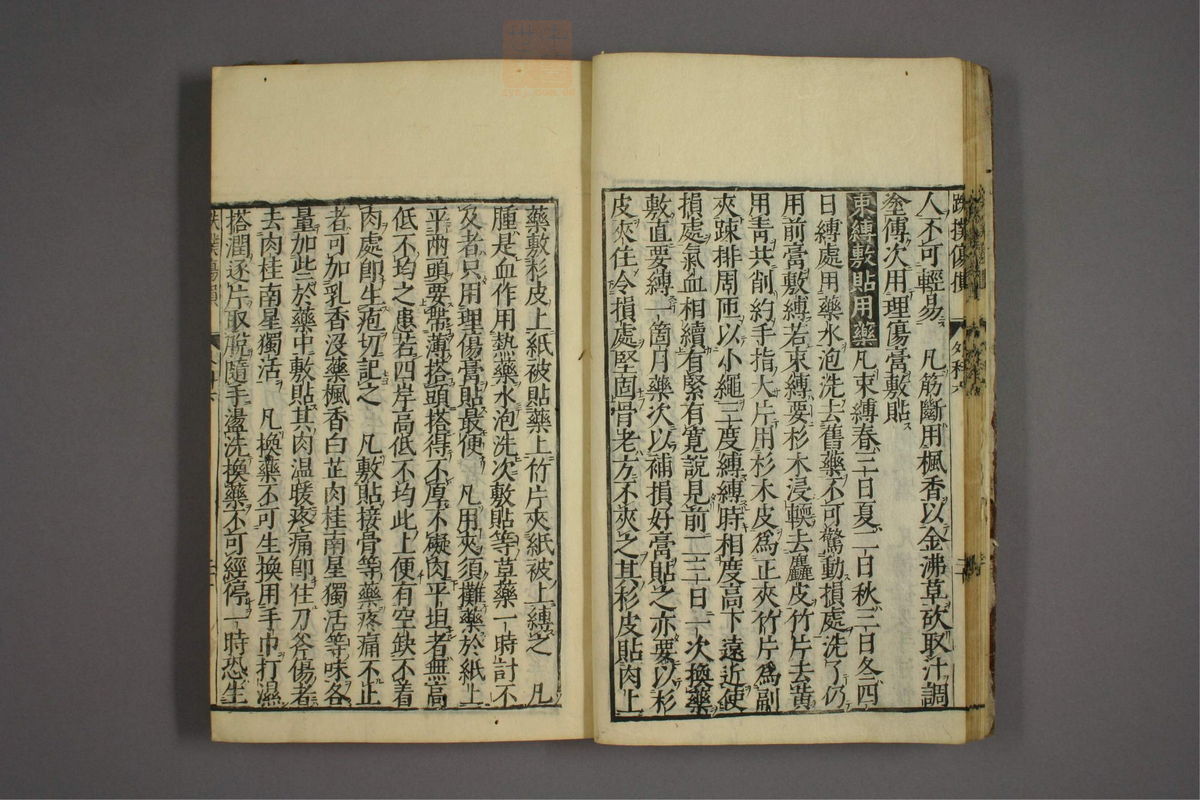 人不可輕易　凡筋斷用楓香以金沸草砍取汁調
塗傅次用理傷膏敷貼
束縛敷貼用藥凡束縛春三日夏二日秋三日冬四
日縛處用藥水泡洗去舊藥不可驚動損處洗了仍
用前膏敷縛若束縛要杉木浸軟去麤皮竹片去黄
用青共削約手指大片用杉木皮爲正夾竹片爲副
夾踈排周匝以小繩三度縛縛時相度高下遠近使
損處氣血相續有緊有寛說見前二三日一次換藥
敷直要縛一箇月藥次以補損好膏貼之亦要以杉
皮夾住令損處堅固骨老方不夾之其杉皮貼肉上
藥敷杉皮上紙被貼藥上竹片夾紙被上縛之　凡
腫是血作用熱藥水泡洗次敷貼等草藥一時討不
及者只用理傷膏貼最便　凡用夾須攤藥於紙上
平兩頭要帶薄搭頭搭得不厚不礙肉平坦者無高
低不均之患若四岸高低不均此上便有空缺不着
肉處即生疱切記之　凡敷貼接骨等藥疼痛不止
者可加乳香没藥楓香白芷肉桂南星獨活等味各
量加些於藥中敷貼其肉温暖疼痛即住刀斧傷者
去肉桂南星獨活　凡換藥不可生換用手巾打濕
搭潤逐片取脫隨手盪洗換藥不可經停一時恐生